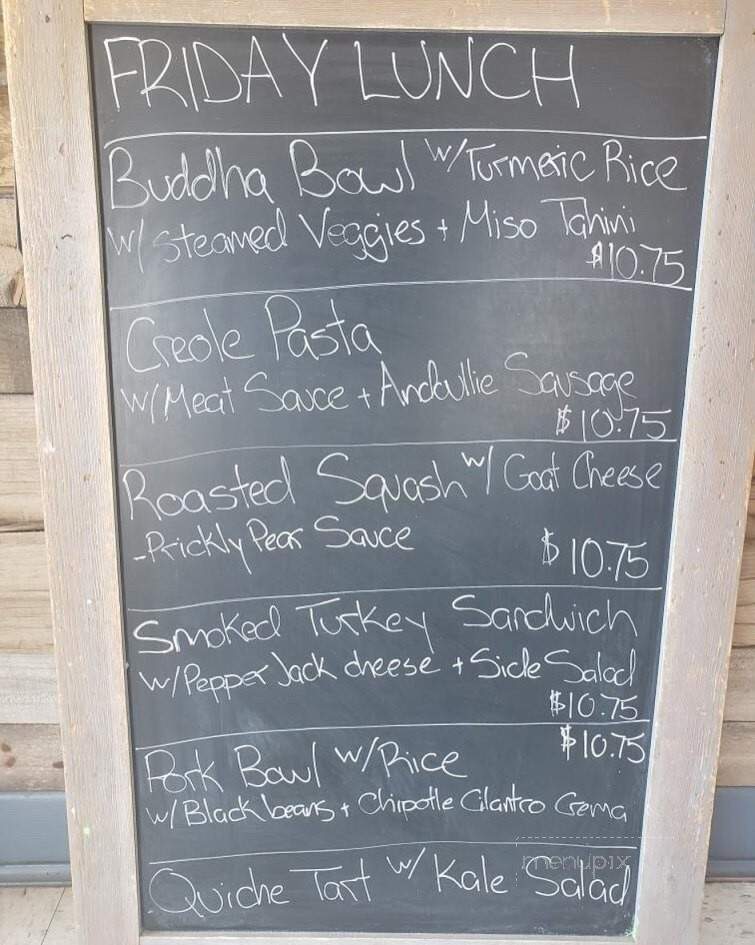 FRIDAY LUNCH
Buddha Bowl w/ Turmeric Rice
w/ Steamed Veggies + Miso Tahini
$10.75
Creole Pasta
w/ Meat Sauce + Andoullie Sausage
$10.75
Roasted Squash w/ Goat Cheese
- Prickly Pear Sauce $10.75
Smoked Turkey Sandwich
w/ Pepper Jack cheese + Side Salad
$10.75
$10.75
Pork Bowl w/ Rice
w/ Black beans + Chipotle Cilantro Crema
menupix
Quiche Tart w/ Kale Salad